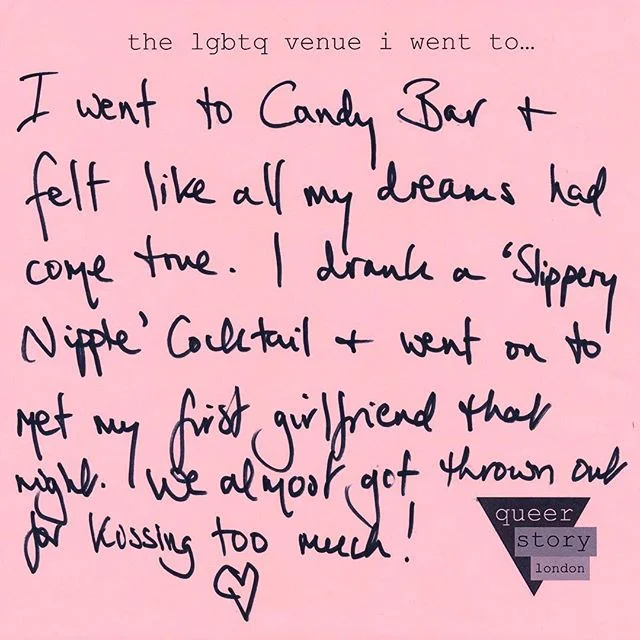 the lgbtq venue i went to...
I went to Candy Bar +
felt like all my dreams had
come true. I drank a 'Slippery
Nipple' Cocktail + went on to
met my first girlfriend that
night. We almost got thrown out
for kissing too much!
queer
story
london